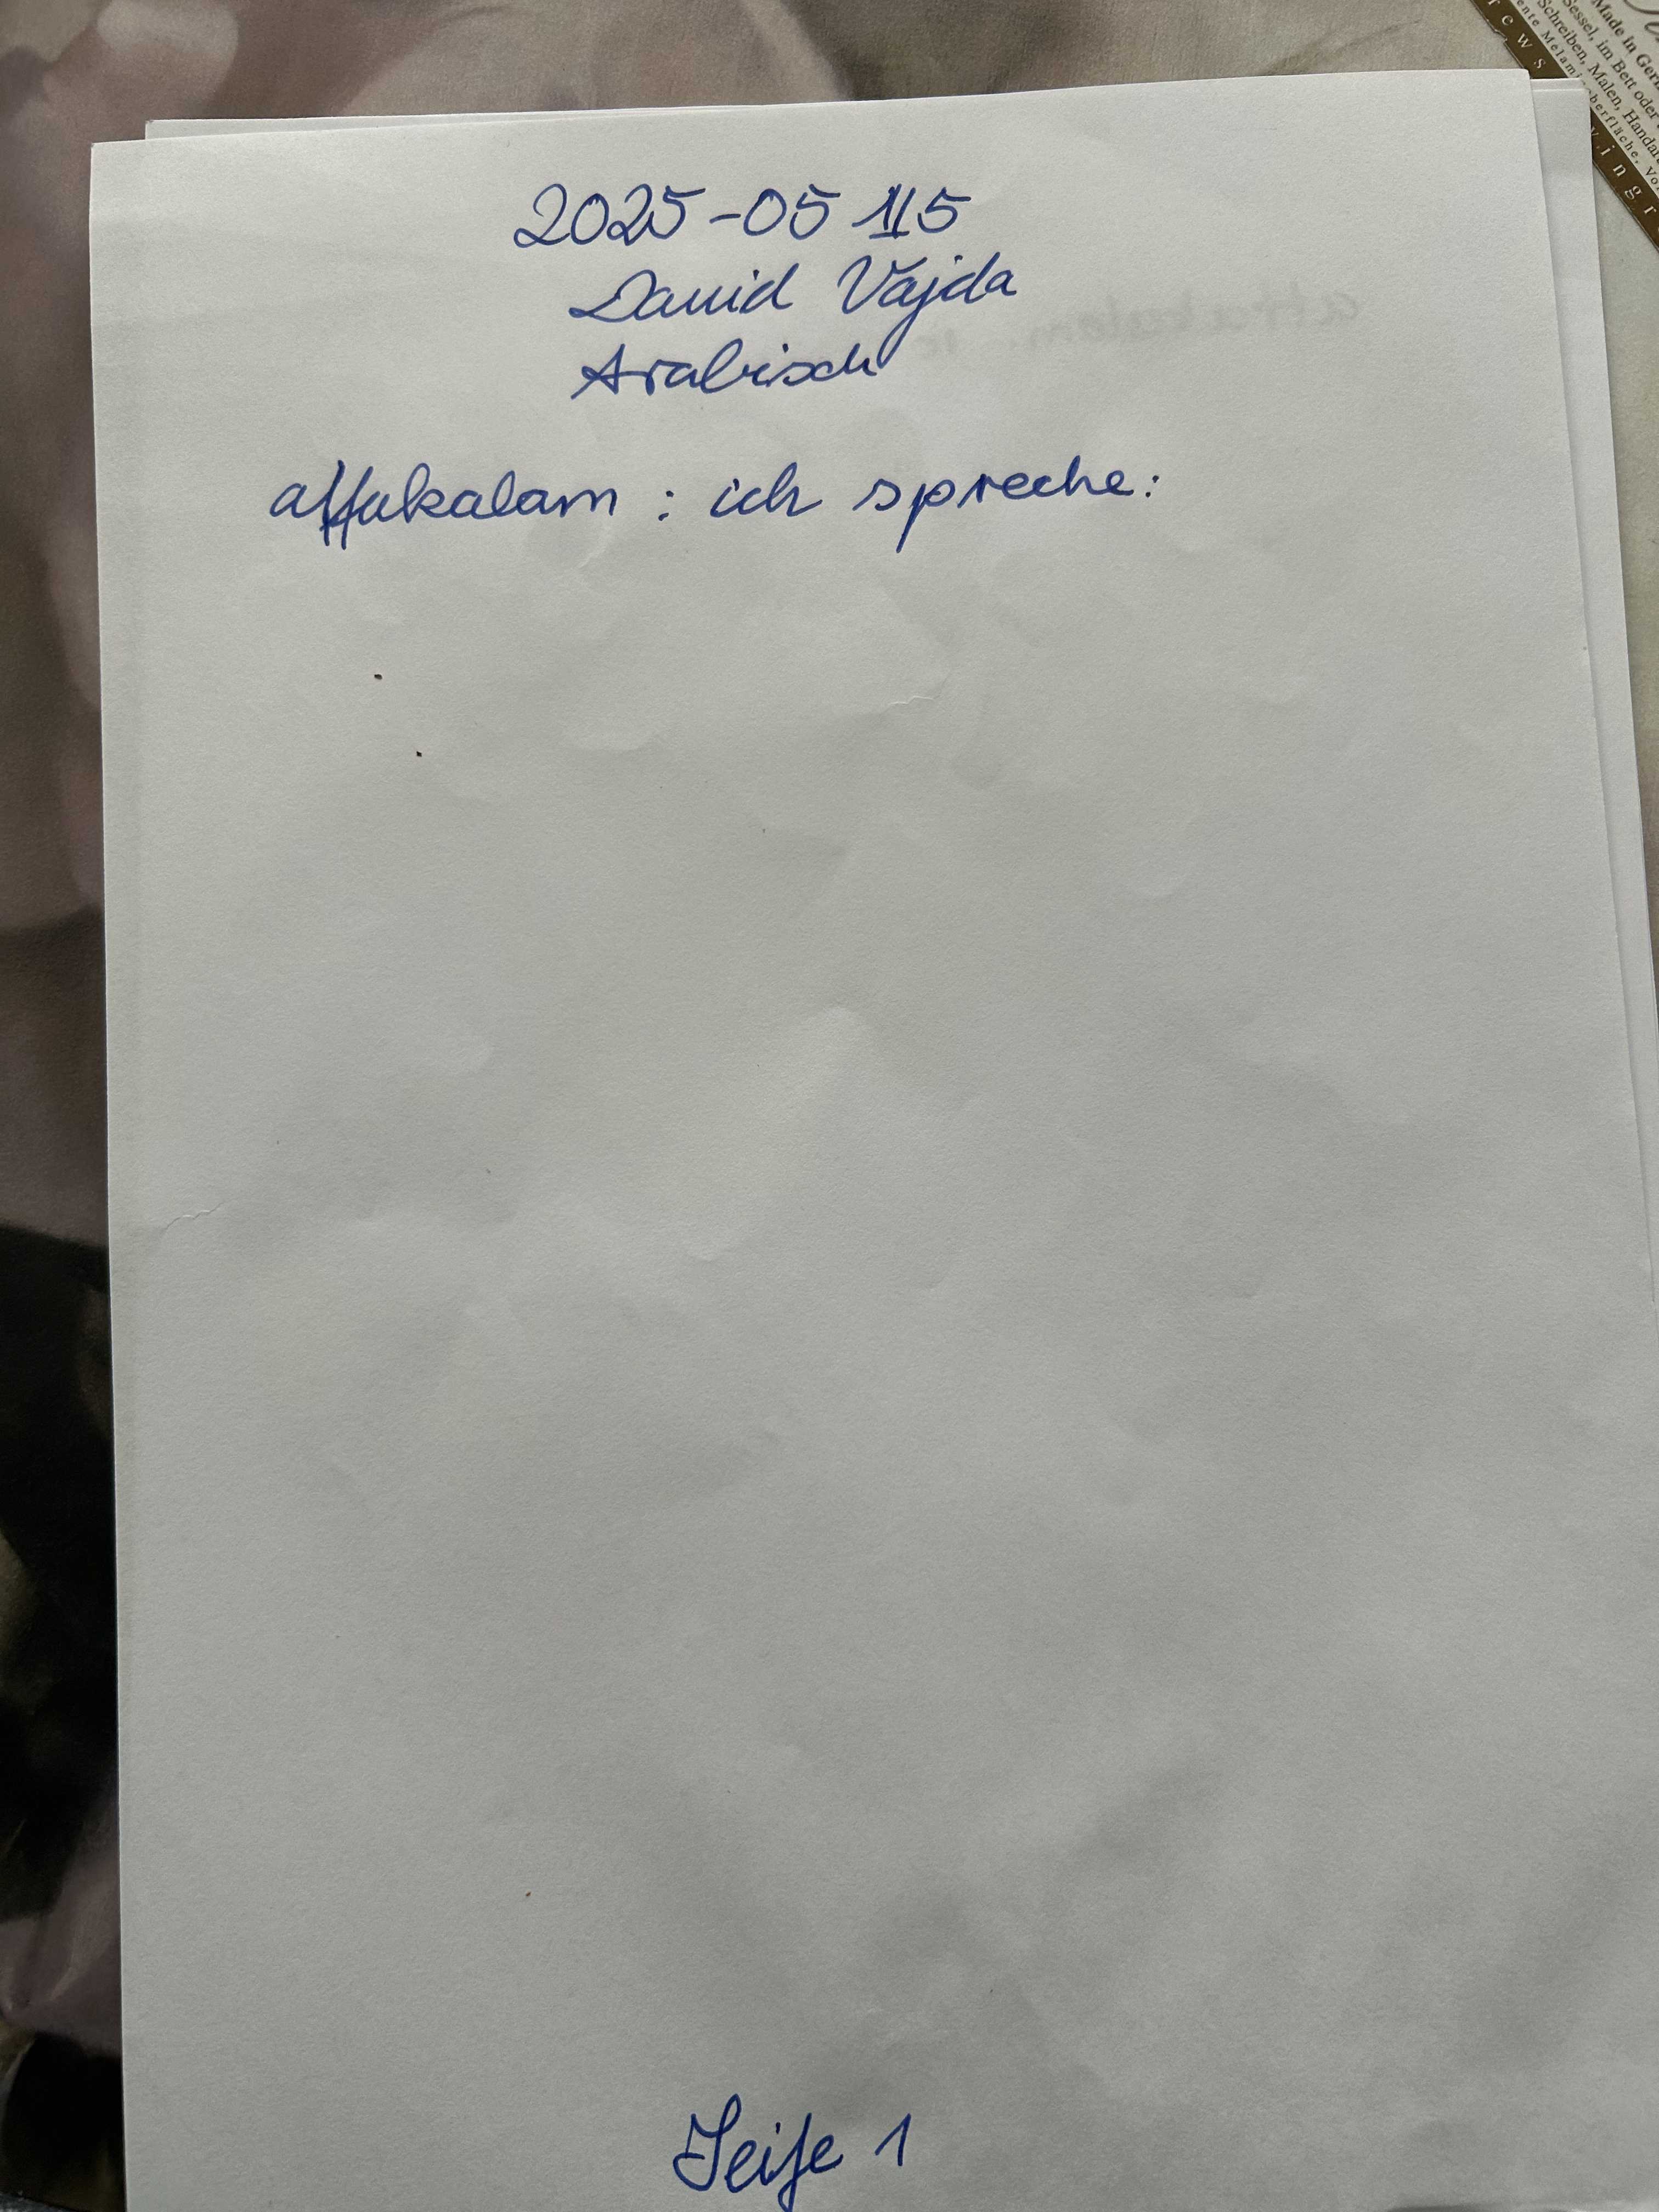 2025-05 15
David Vajda
Arabisch
affukalam : ich spreche:
Seite 1
Made in Ger
Sessel, im Bett oder
Schreiben, Malen, Handar